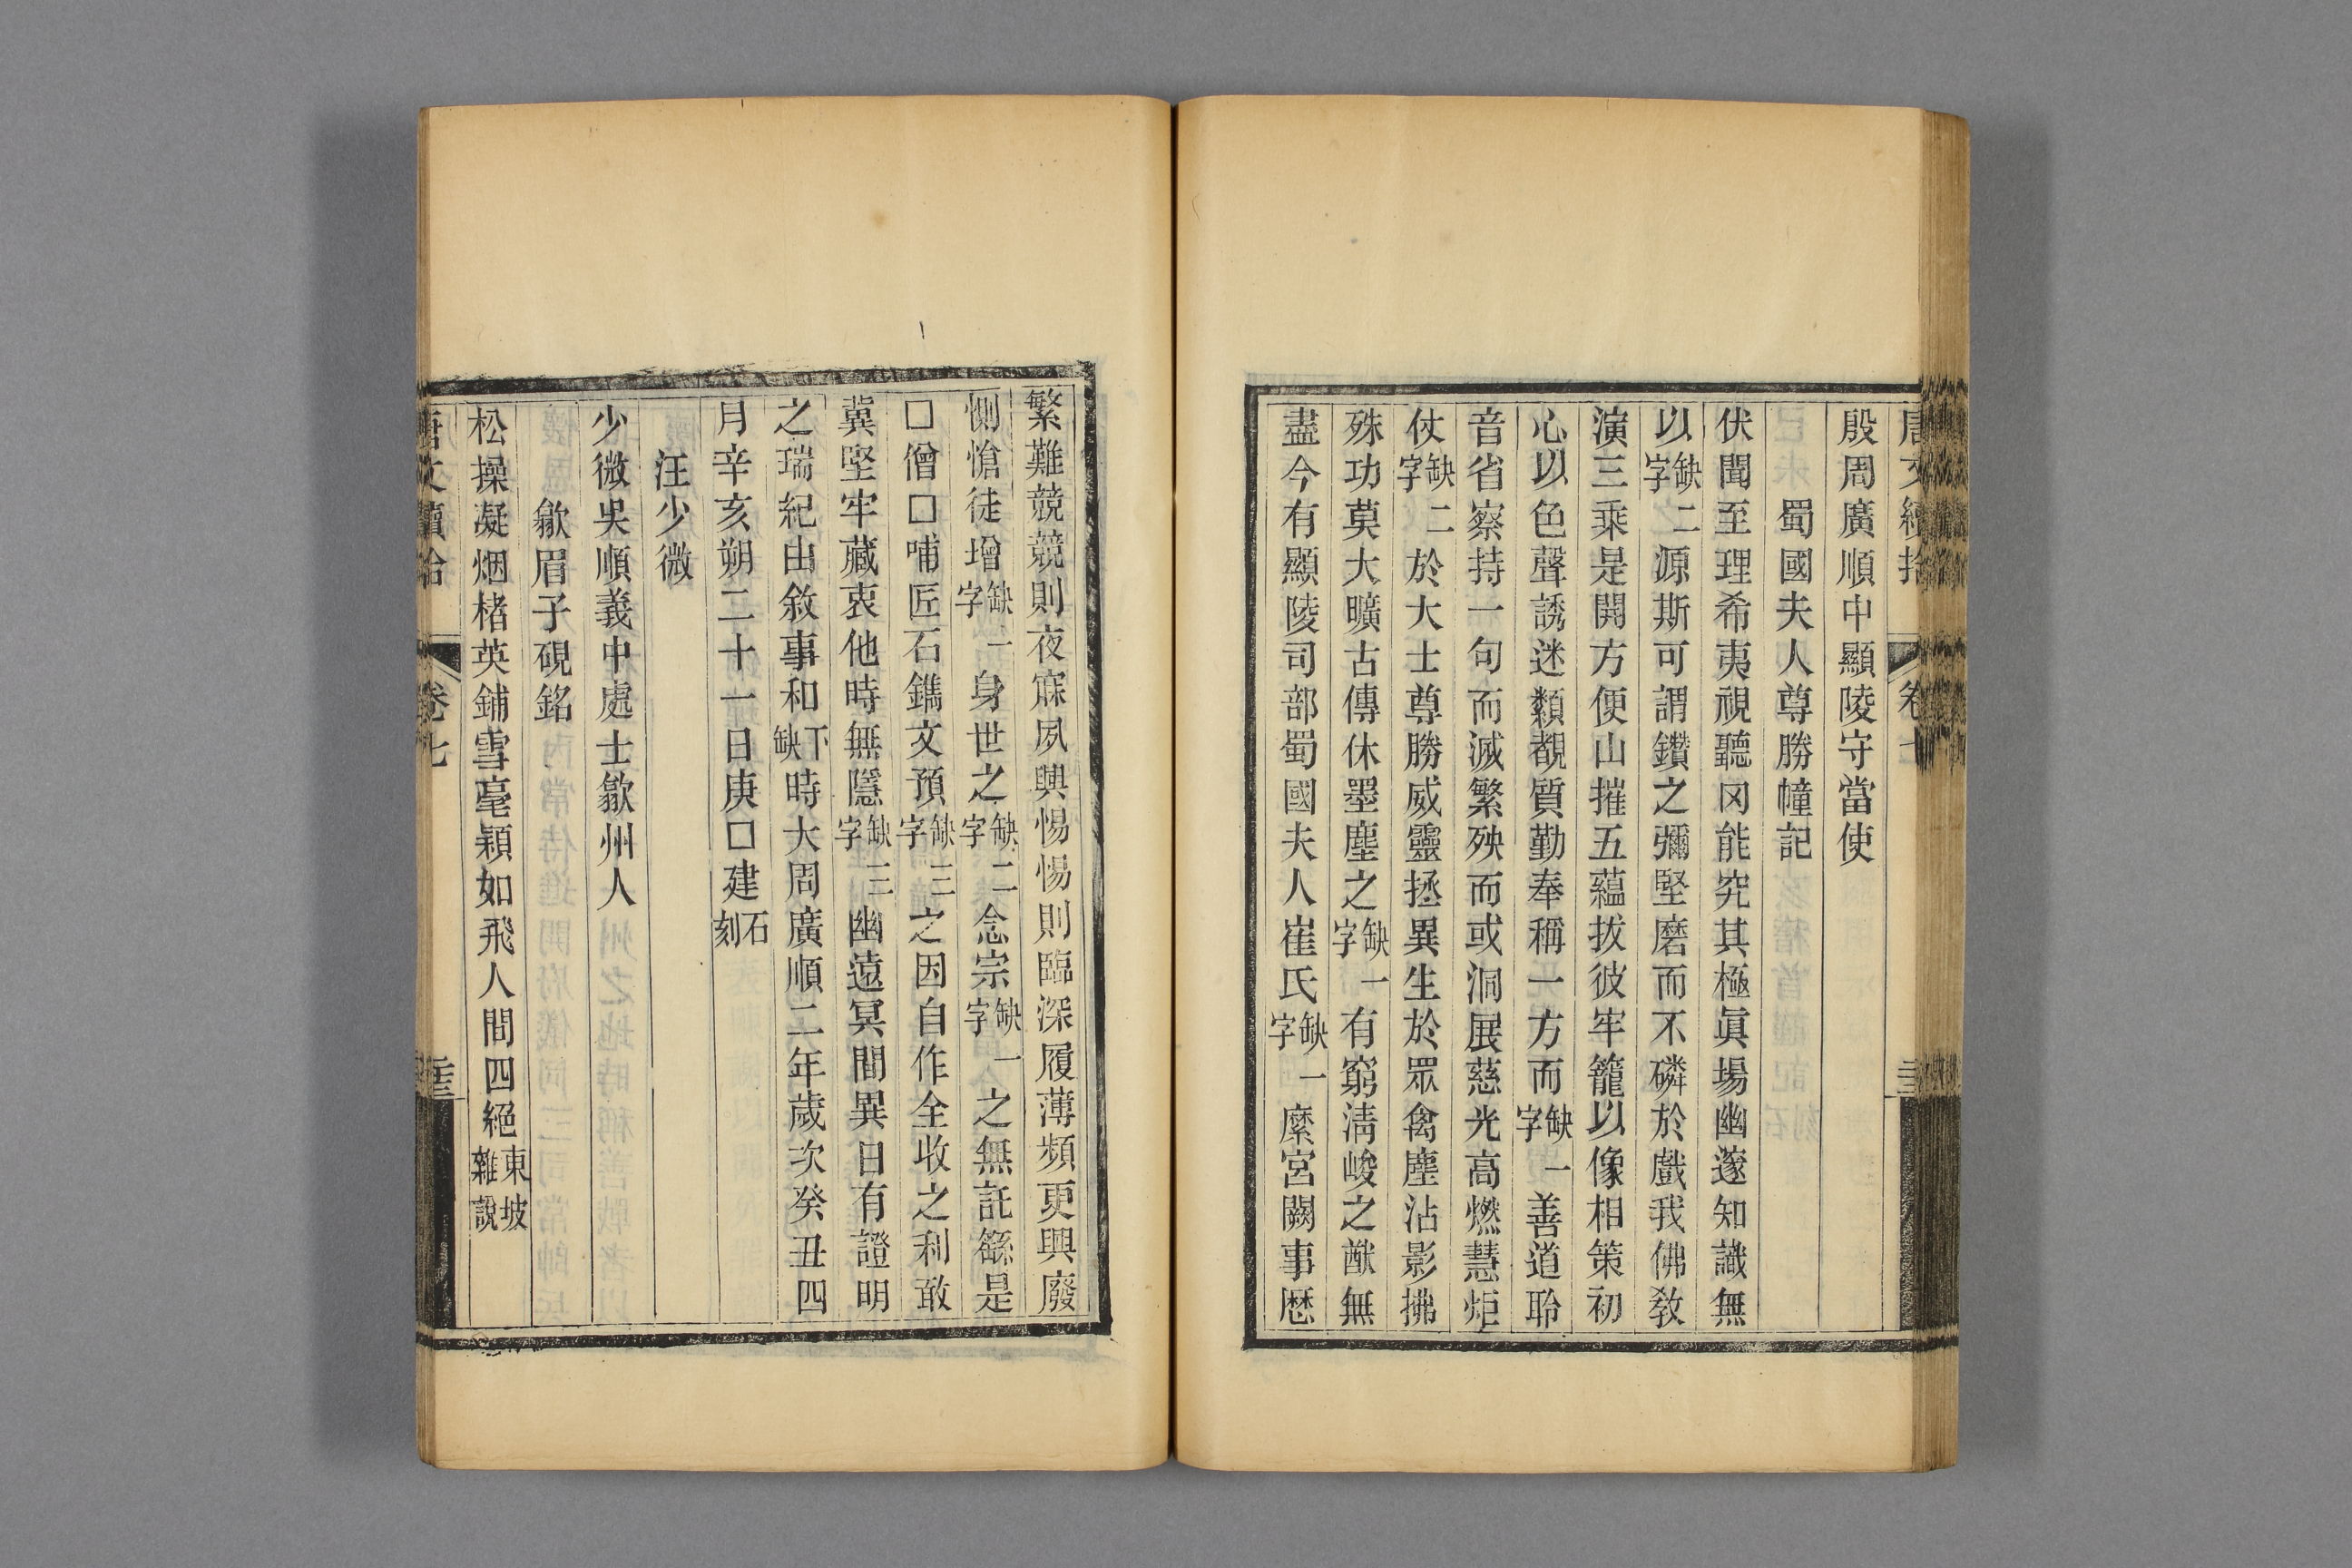 殷周廣順中顯陵守當使
蜀國夫人尊勝幢記
伏聞至理希夷視聽冈能究其極眞場幽邃知識無
以缺二字源斯可謂鑽之彌堅磨而不磷於戲我佛敎
演三乘是開方便山摧五蘊拔彼牢籠以像相策初
心以色聲誘迷類覩質勤奉稱一方而缺一字善道聆
音省察持一句而滅繁殃而或洞展慈光高燃慧炬
仗缺二字於大士尊勝威靈拯異生於眾禽塵沾影拂
殊功莫大曠古傳休墨塵之缺一字有窮淸峻之猷無
盡今有顯陵司部蜀國夫人崔氏缺一字縻宮闕事歷
繁難競競則夜寐夙興惕惕則臨深履薄頻更興廢
惻愴徒增缺一字身世之缺二字念宗缺一字之無託繇是
□僧□□哺匠石鐫文預缺三字之因自作全收之利敢
冀堅牢藏衷他時無隱缺三字幽遠冥間異日有證明
之瑞紀由敘事和下缺時大周廣順二年歲次癸丑四
月辛亥朔二十一日庚□建石刻
汪少微
少微吳順義中處士歙州人
歙眉子硯銘
松操凝烟楮英鋪雪毫穎如飛人間四絕東坡雜說
唐文續拾 卷七